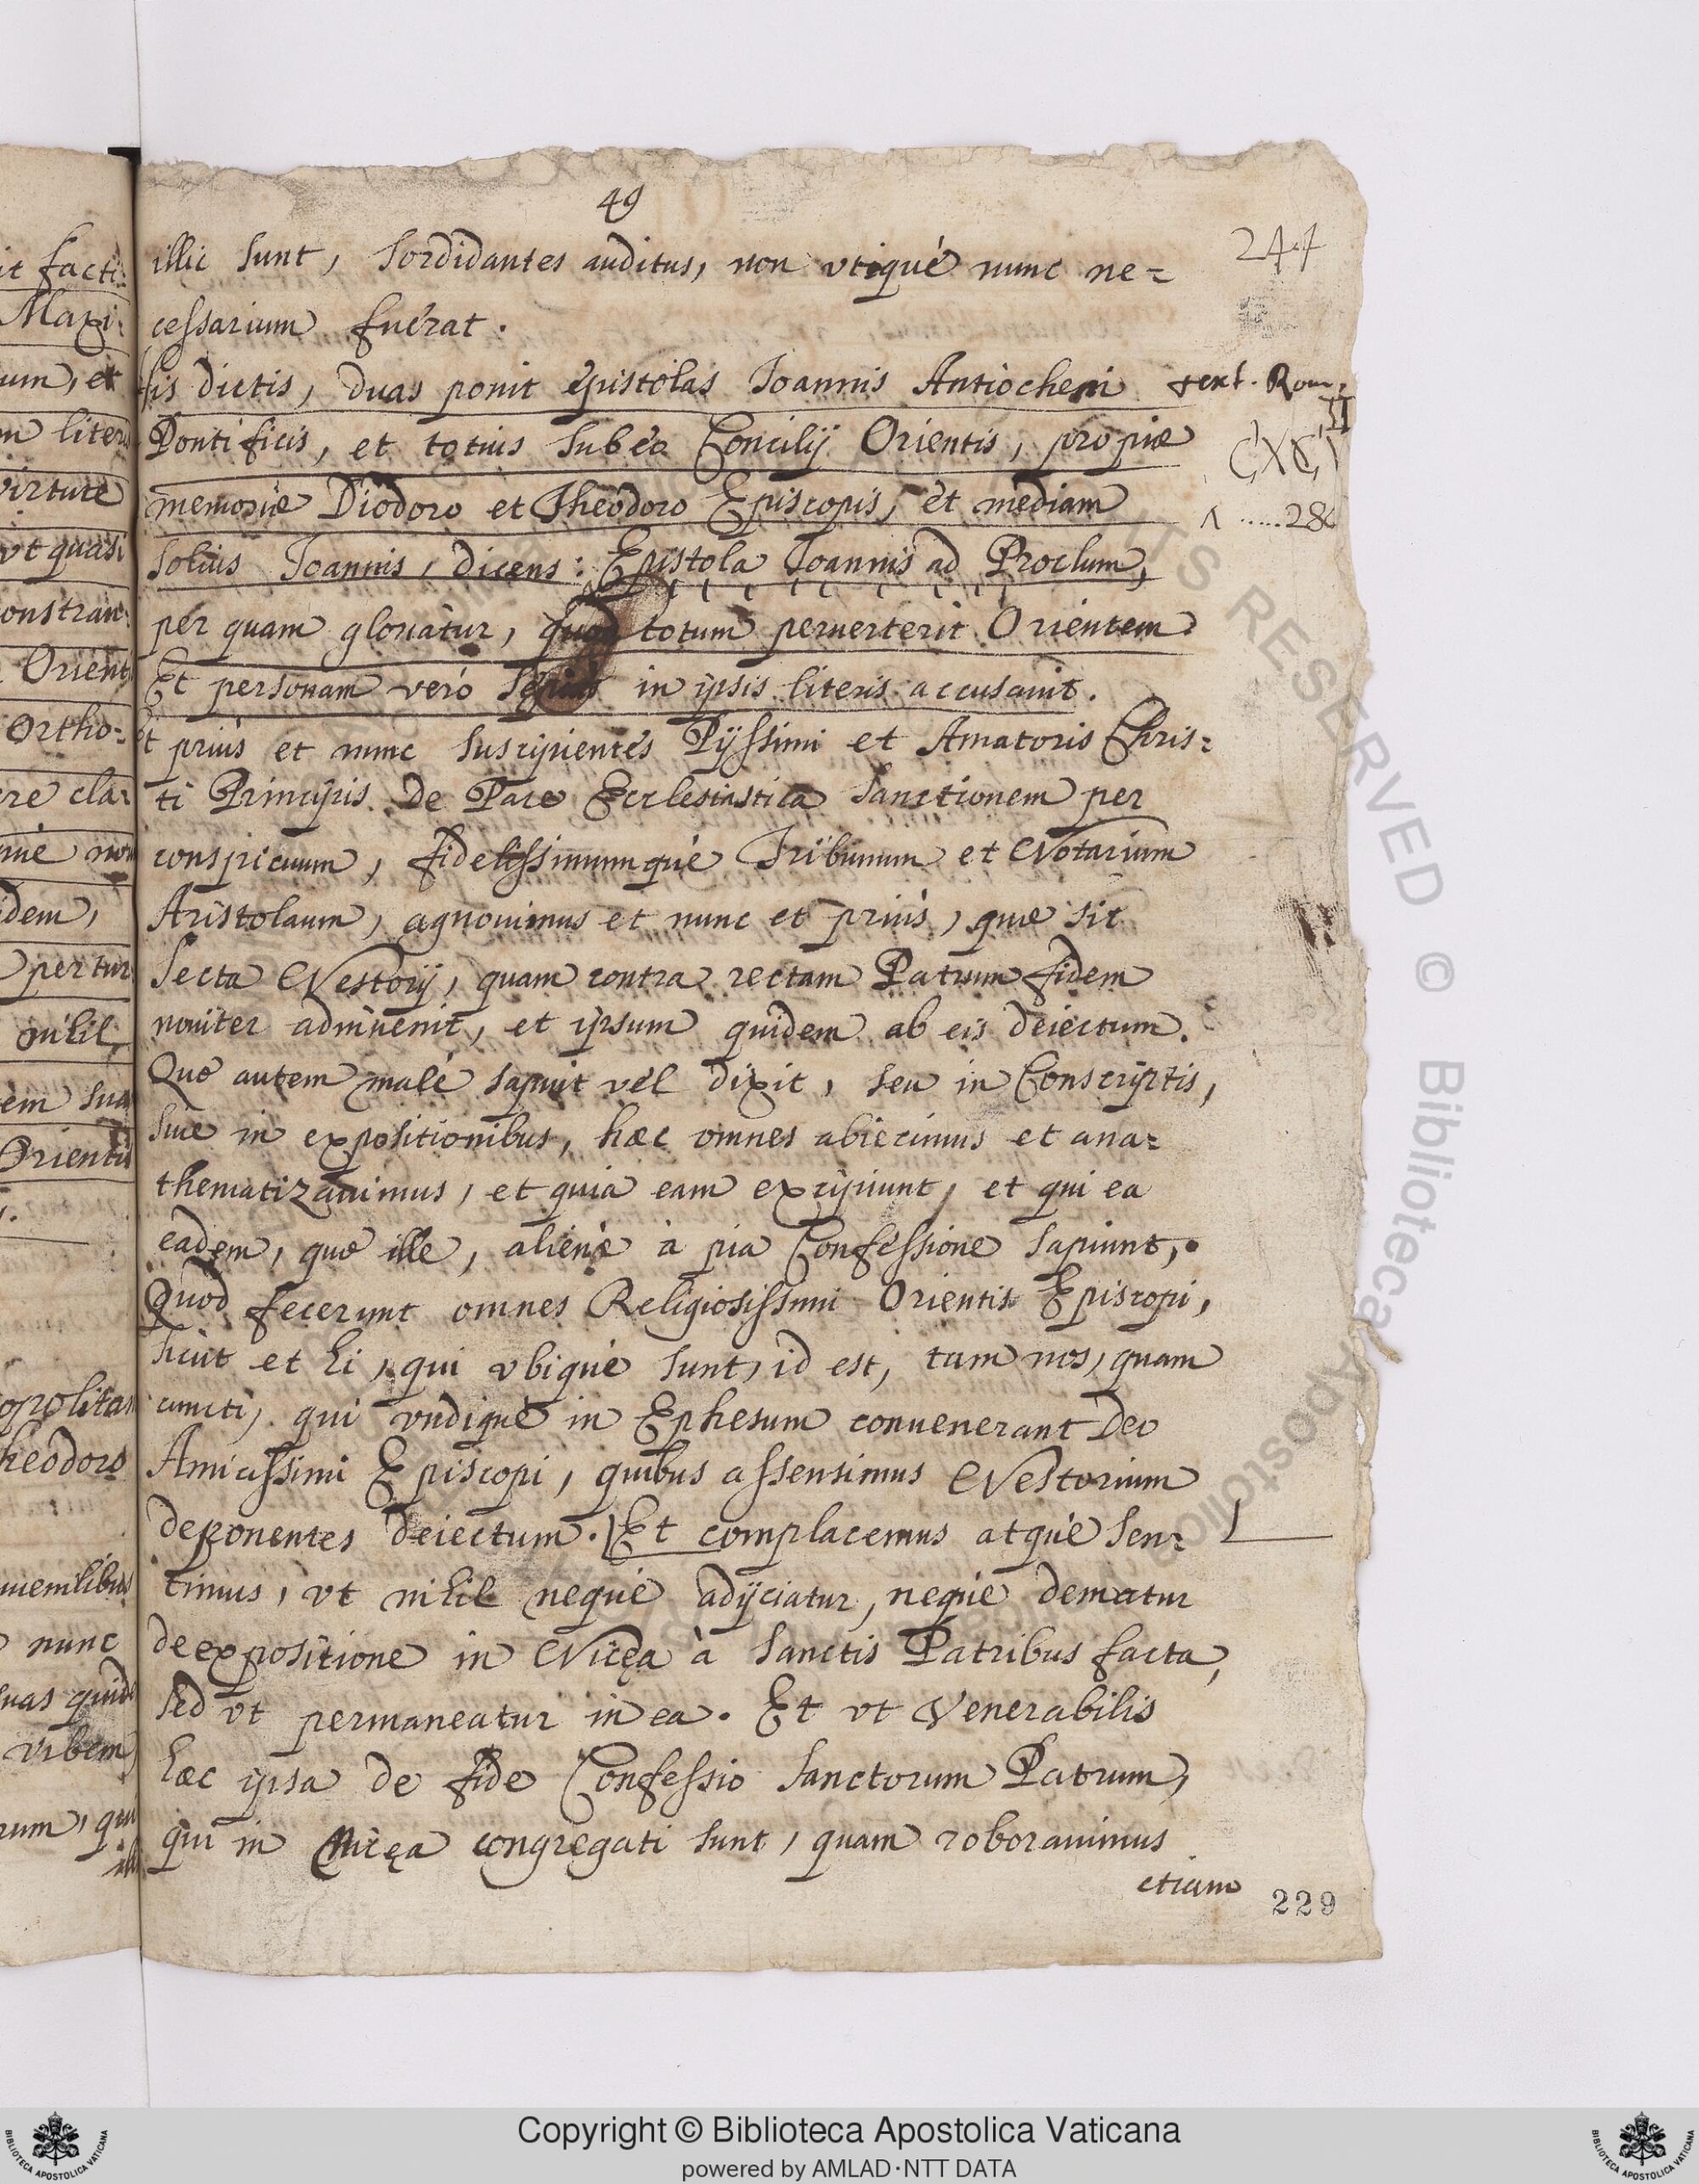 49
244
illic sunt, sordidantes auditus, non vtiquè nunc ne=
cessarium fuerat.
His dictis, duas ponit epistolas Ioannis Antiocheni
Pontificis, et totius sub eo Concilij Orientis, pro piæ
memoriæ Diodoro et Theodoro Episcopis, et mediam
solius Ioannis, dicens: Epistola Ioannis ad Proclum,
per quam gloriatur, quod totum peruerterit Orientem
Et personam verò in ipsis literis accusauit.
Et priùs et nunc suscipientes Pijssimi et Amatoris Chris=
ti Principis de Pace Ecclesiastica sanctionem per
conspicuum, fidelissimumquè Tribunum et Notarium
Aristolaum, agnouimus et nunc et priùs, quæ sit
secta Nestorij, quam contra rectam Patrum fidem
nouiter adinuenit, et ipsum quidem ab eis deiectum.
Quæ autem malè sapuit vel dixit, seu in Conscriptis,
siue in expositionibus, hæc omnes abiecimus et ana=
thematizauimus, et quia eam excipiunt, et qui ea
eadem, quæ ille, alienè à pia Confessione sapiunt,
Quod fecerunt omnes Religiosissimi Orientis Episcopi,
sicut et hi, qui vbique sunt, id est, tam nos, quam
cuncti, qui vndique in Ephesum conuenerant Deo
Amicissimi Episcopi, quibus assensimus Nestorium
deponentes deiectum. Et complacemus atquè sen=
timus, vt nihil nequè adijciatur, nequè dematur
de expositione in Nicęa à Sanctis Patribus facta,
sed vt permaneatur in ea. Et vt Venerabilis
hæc ipsa de fide Confessio Sanctorum Patrum,
qui in Nicęa congregati sunt, quam roborauimus
etiam
229
text. Rom.
II
CXCV
it facti
Maxi
um, et
virtute
vt quasi
Orient
Ortho=
re cla=
idem,
pertur
nihil
Orientis
nunc
vrbem
Copyright © Biblioteca Apostolica Vaticana
powered by AMLAD·NTT DATA